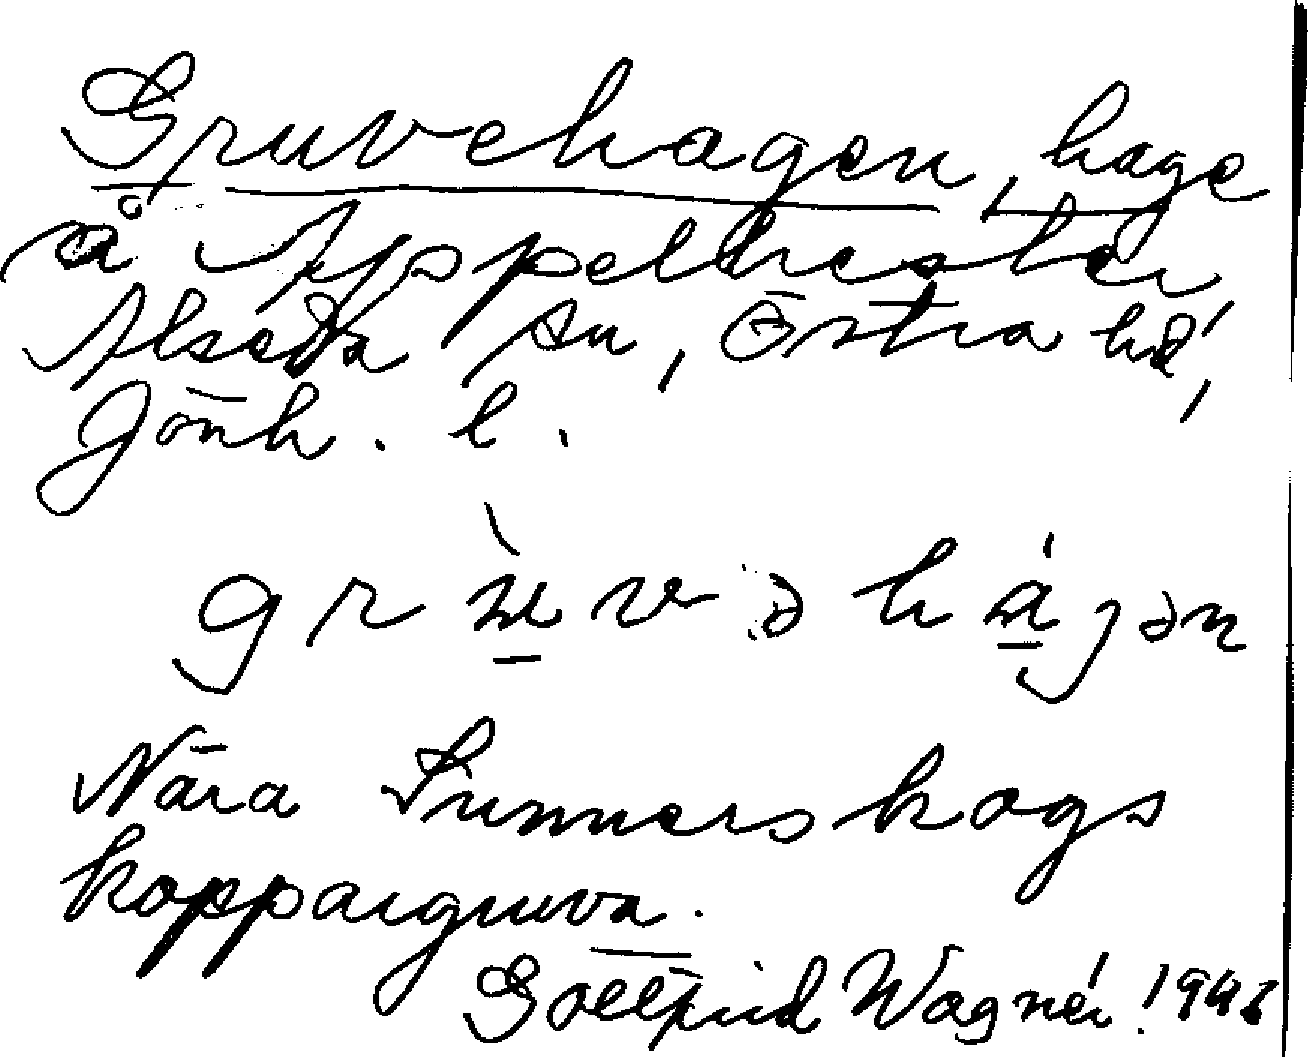 Gruvehagen, hage
å Äppelhester
Alseda sn, Östra hd,
Jönk. l.
grùvəhágən
Nära Sunnerskogs
koppargruva.
Gottfrid Wagnér